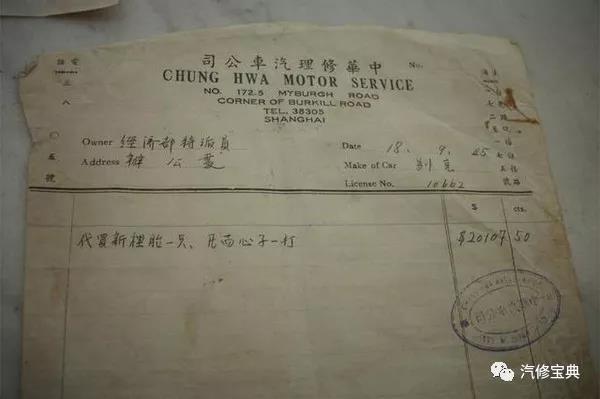 中華修理汽車公司
CHUNG HWA MOTOR SERVICE
No.
NO. 172.5 MYBURGH ROAD
CORNER OF BURKILL ROAD
TEL. 38305
SHANGHAI
電話
三八〇五號
Owner 經濟部特派員
Date 18. 9. 45
Address 辦公處
Make of Car 別克
License No. 10662
$ cts.
代買新裡胎一只、凡而心子一打 $20107 50
汽修宝典